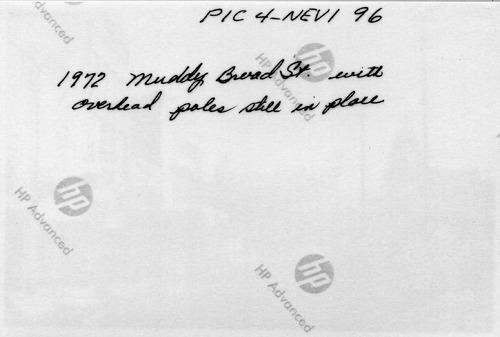 PIC 4-NEVI 96
1972 Muddy Broad St. with
overhead poles still in place
hp
HP Advanced
hp
HP Advanced
hp
HP Advanced
hp
HP Advanced